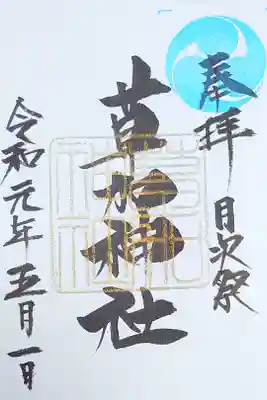 奉拝 月次祭
草加神社
令和元年五月一日